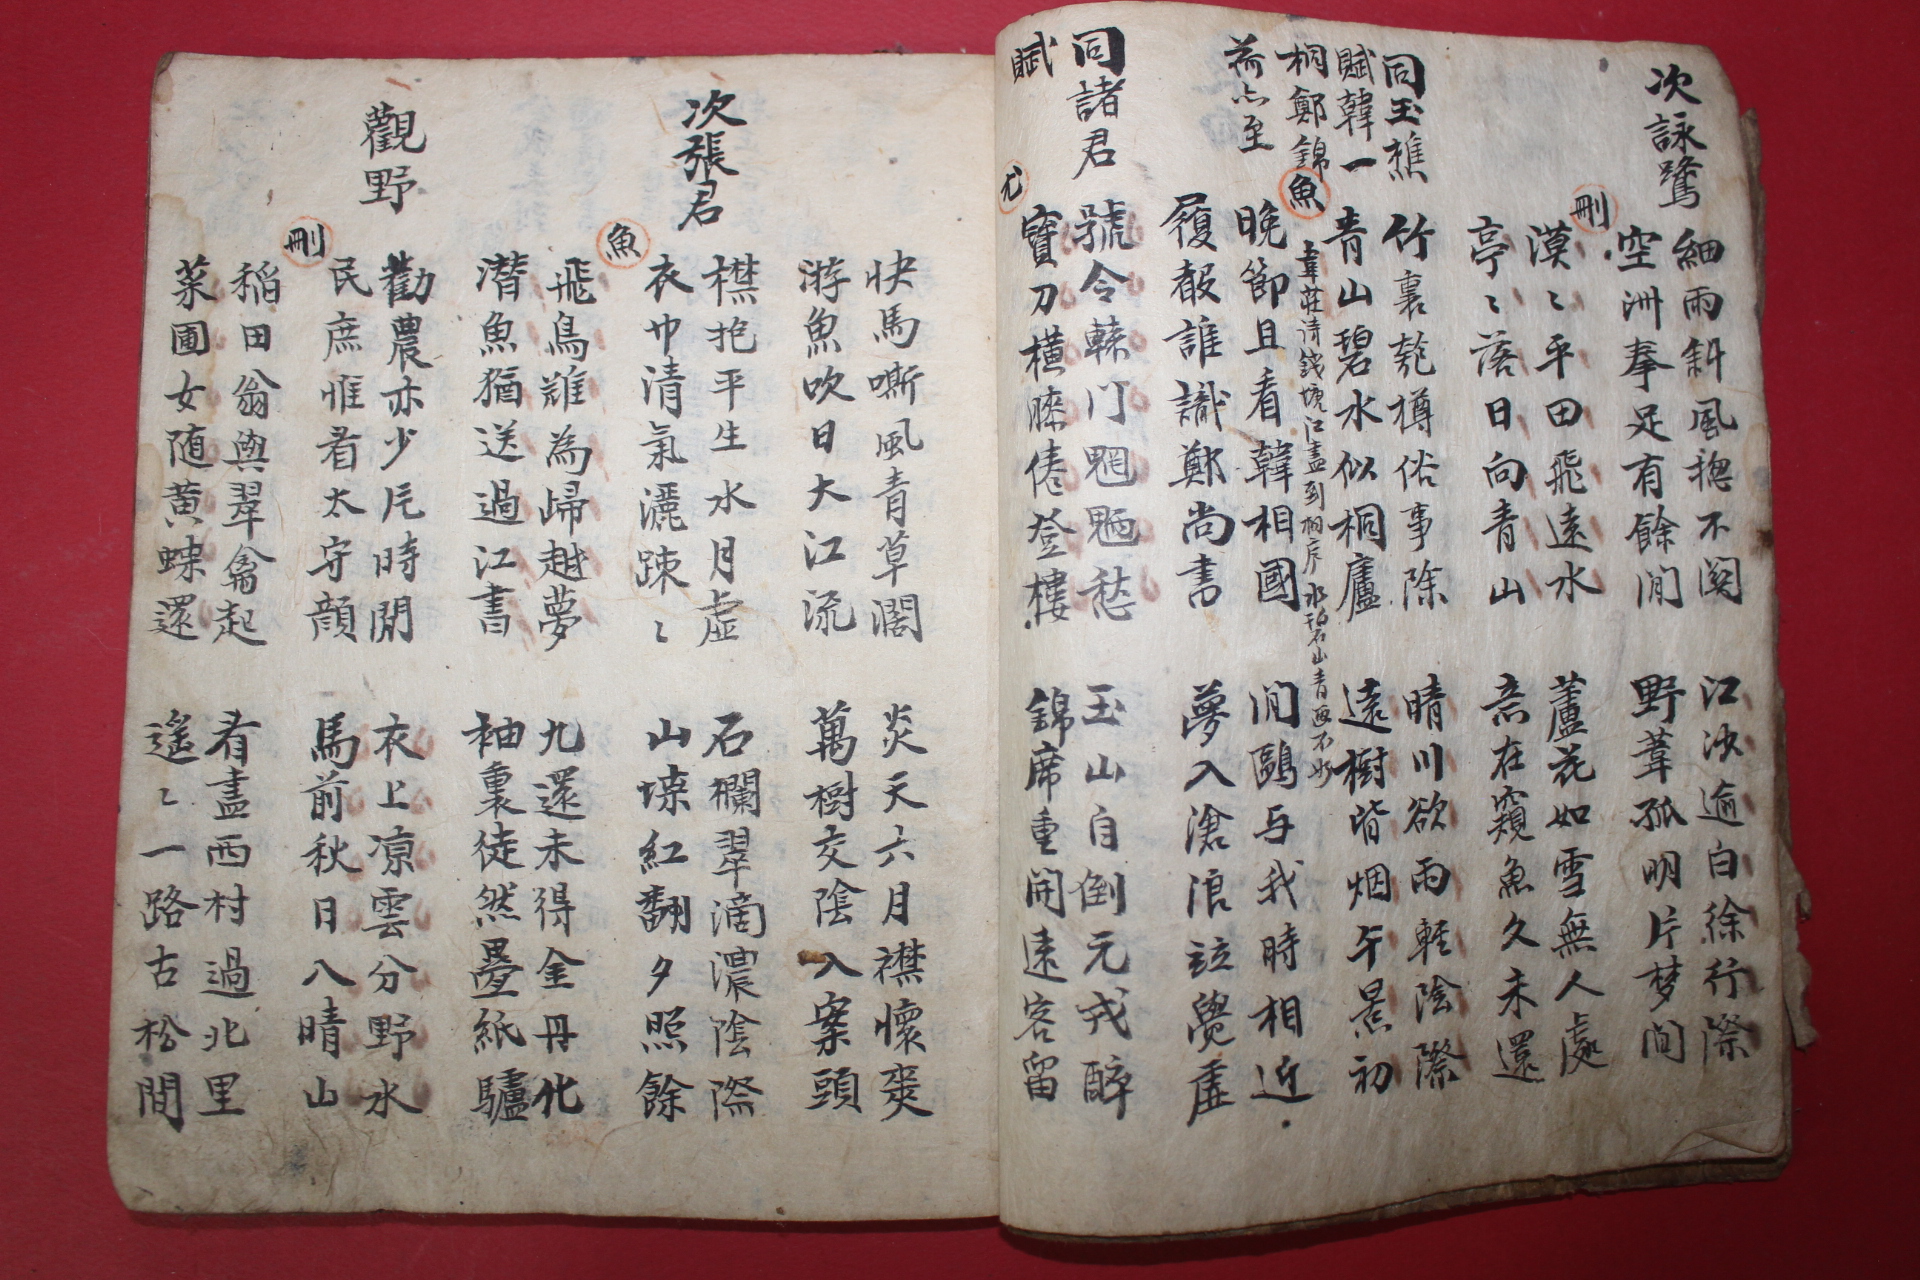 次詠鷺
細雨斜風揔不関
江決逾白徐行際
空洲拳足有餘間
野葦孤明片梦間
刪
漠〻平田飛遠水
蘆花如雪無人處
亭〻落日向青山
意在窺魚久未還
同玉樵
賦韓一
桐鄭錦
荷亦至
魚
竹裏乾樽俗事除
晴川欲雨輕陰際
青山碧水似桐廬
遠樹皆烟午景初
韋莊詩錢塘江盡到桐庐水碧山青画不如
晩節且看韓相國
间鷗与我時相近
履聲誰識鄭尚書
夢入滄浪竝覺虚
同諸君
賦
尤
號令轅门魍魎愁
玉山自倒元戎醉
寶刀橫膝倦登樓
錦席重開遠客留
快馬嘶風青草濶
炎天六月襟懷爽
游魚吹日大江流
萬樹交陰入案頭
次張君
魚
襟抱平生水月虛
石欄翠滴濃陰際
衣巾清氣灑踈〻
山堞紅翻夕照餘
飛鳥難為歸越夢
九還未得金丹化
潜魚猶送過江書
袖裏徒然疊紙驢
觀野
刪
勸農亦少片時閒
衣上凉雲分野水
民庶惟看太守顔
馬前秋日入晴山
稲田翁與翠禽起
看盡西村過北里
菜圃女随黄蝶還
遙〻一路古松間